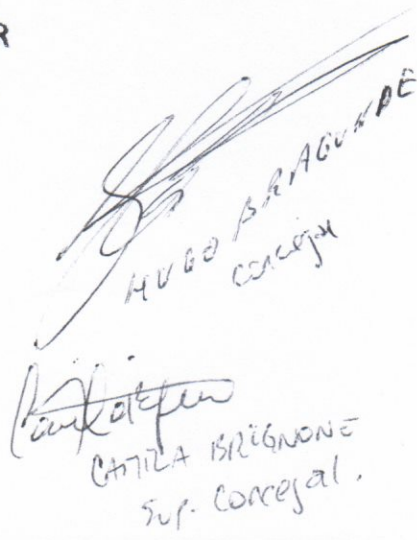 R
HUGO BRAGUNDE
concejal
CAMILA BRIGNONE
Sup. Concejal.